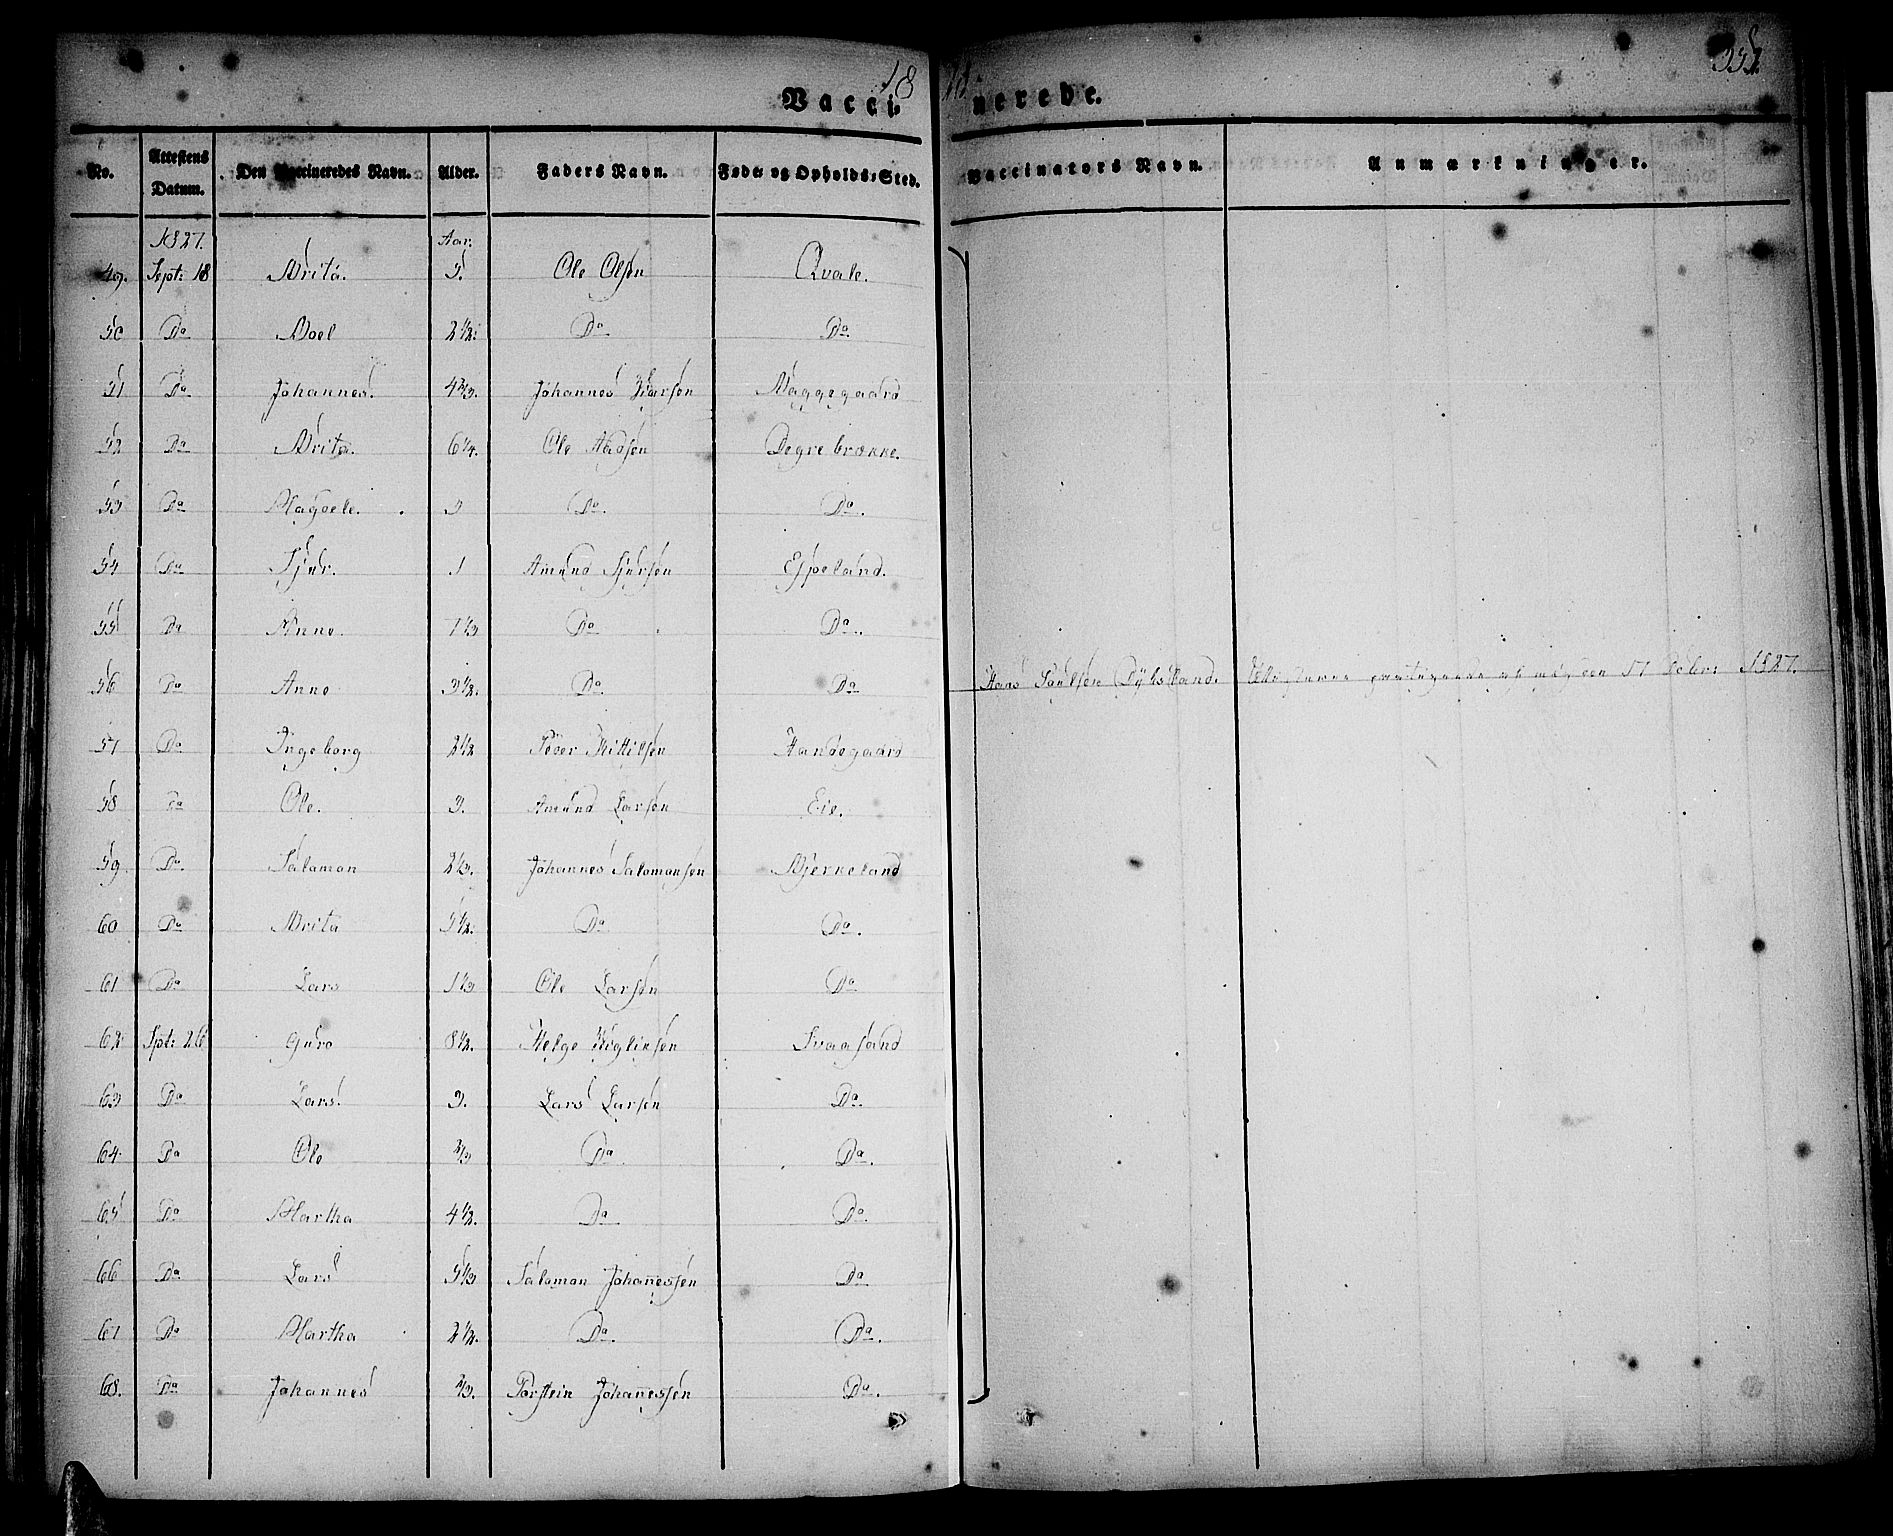 18 18 351
Vacci- nerede.
No. Attestens Datum. Den Vaccineredes Navn. Alder. Faders Navn. Føde- og Opholds-Sted. Vaccinators Navn. Anmærkninger.
1827. Aar.
49. Sept: 18 Brita. 5. Ole Olsen Qvale.
50 Do Boel 2 1/2. Do Do.
51 Do Johannes. 4 2/3. Johannes Ivarsen Maggegaard
52 Do Brita. 6 1/4. Ole Aadsen Degrebrække.
53 Do Magdele. 3 Do. Do.
54 Do Sjur. 1 Amund Sjursen Espeland.
55 Do Anne. 7 1/3 Do Do.
56 Do Anne 3 1/2. Do. Do Hans Poulsen Dÿbsland. 17 1827.
57 Do Ingeborg 2 1/2 Peder Kittilsen Handegaard
58 Do Ole. 3. Amund Larsen Eie.
59 Do. Salamon 2 1/3. Johannes Salamonsen Bjerkeland
60 Do Brita 5 1/2. Do Do.
61 Do Lars 1 1/3 Ole Larsen Do
62 Spt: 26 Guro 8 1/2. Helge Viglixsen Svaasand
63 Do Lars. 3. Lars Larsen Do.
64. Do Ole 2/3 Do Do.
65 Do Martha 4 1/2. Do Do.
66 Do. Lars 5 1/3 Salamon Johanessen Do
67 Do Martha 2 1/2. Do. Do.
68. Do Johannes 2/3. Torstein Johanessen Do.